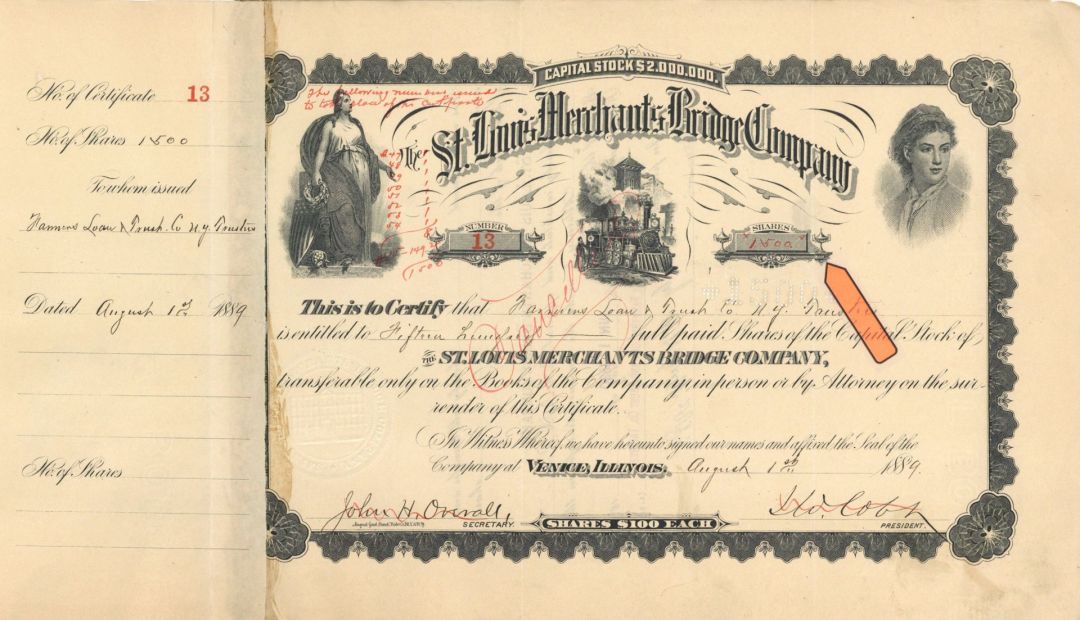 No. of Certificate 13
No. of Shares 1500
To whom issued
Farmers Loan & Trust Co N.Y. Trustee
Dated August 1st 1889
No. of Shares
CAPITAL STOCK $2,000,000.
The following numbers issued
to take place of
The St. Louis Merchants Bridge Company
247
48
49
50
51
52
53
54
1492
1500
NUMBER
13
SHARES
1500
This is to Certify that Farmers Loan & Trust Co N.Y. Trustee
is entitled to Fifteen hundred full paid Shares of the Capital Stock of,
THE ST. LOUIS MERCHANTS BRIDGE COMPANY,
transferable only on the Books of the Company in person or by Attorney on the sur-
render of this Certificate.
Cancelled
In Witness Whereof, we have hereunto signed our names and affixed the Seal of the
Company at VENICE, ILLINOIS, August 1st 1889.
John H. Overall,
SECRETARY.
SHARES $100 EACH
Cobb
PRESIDENT.